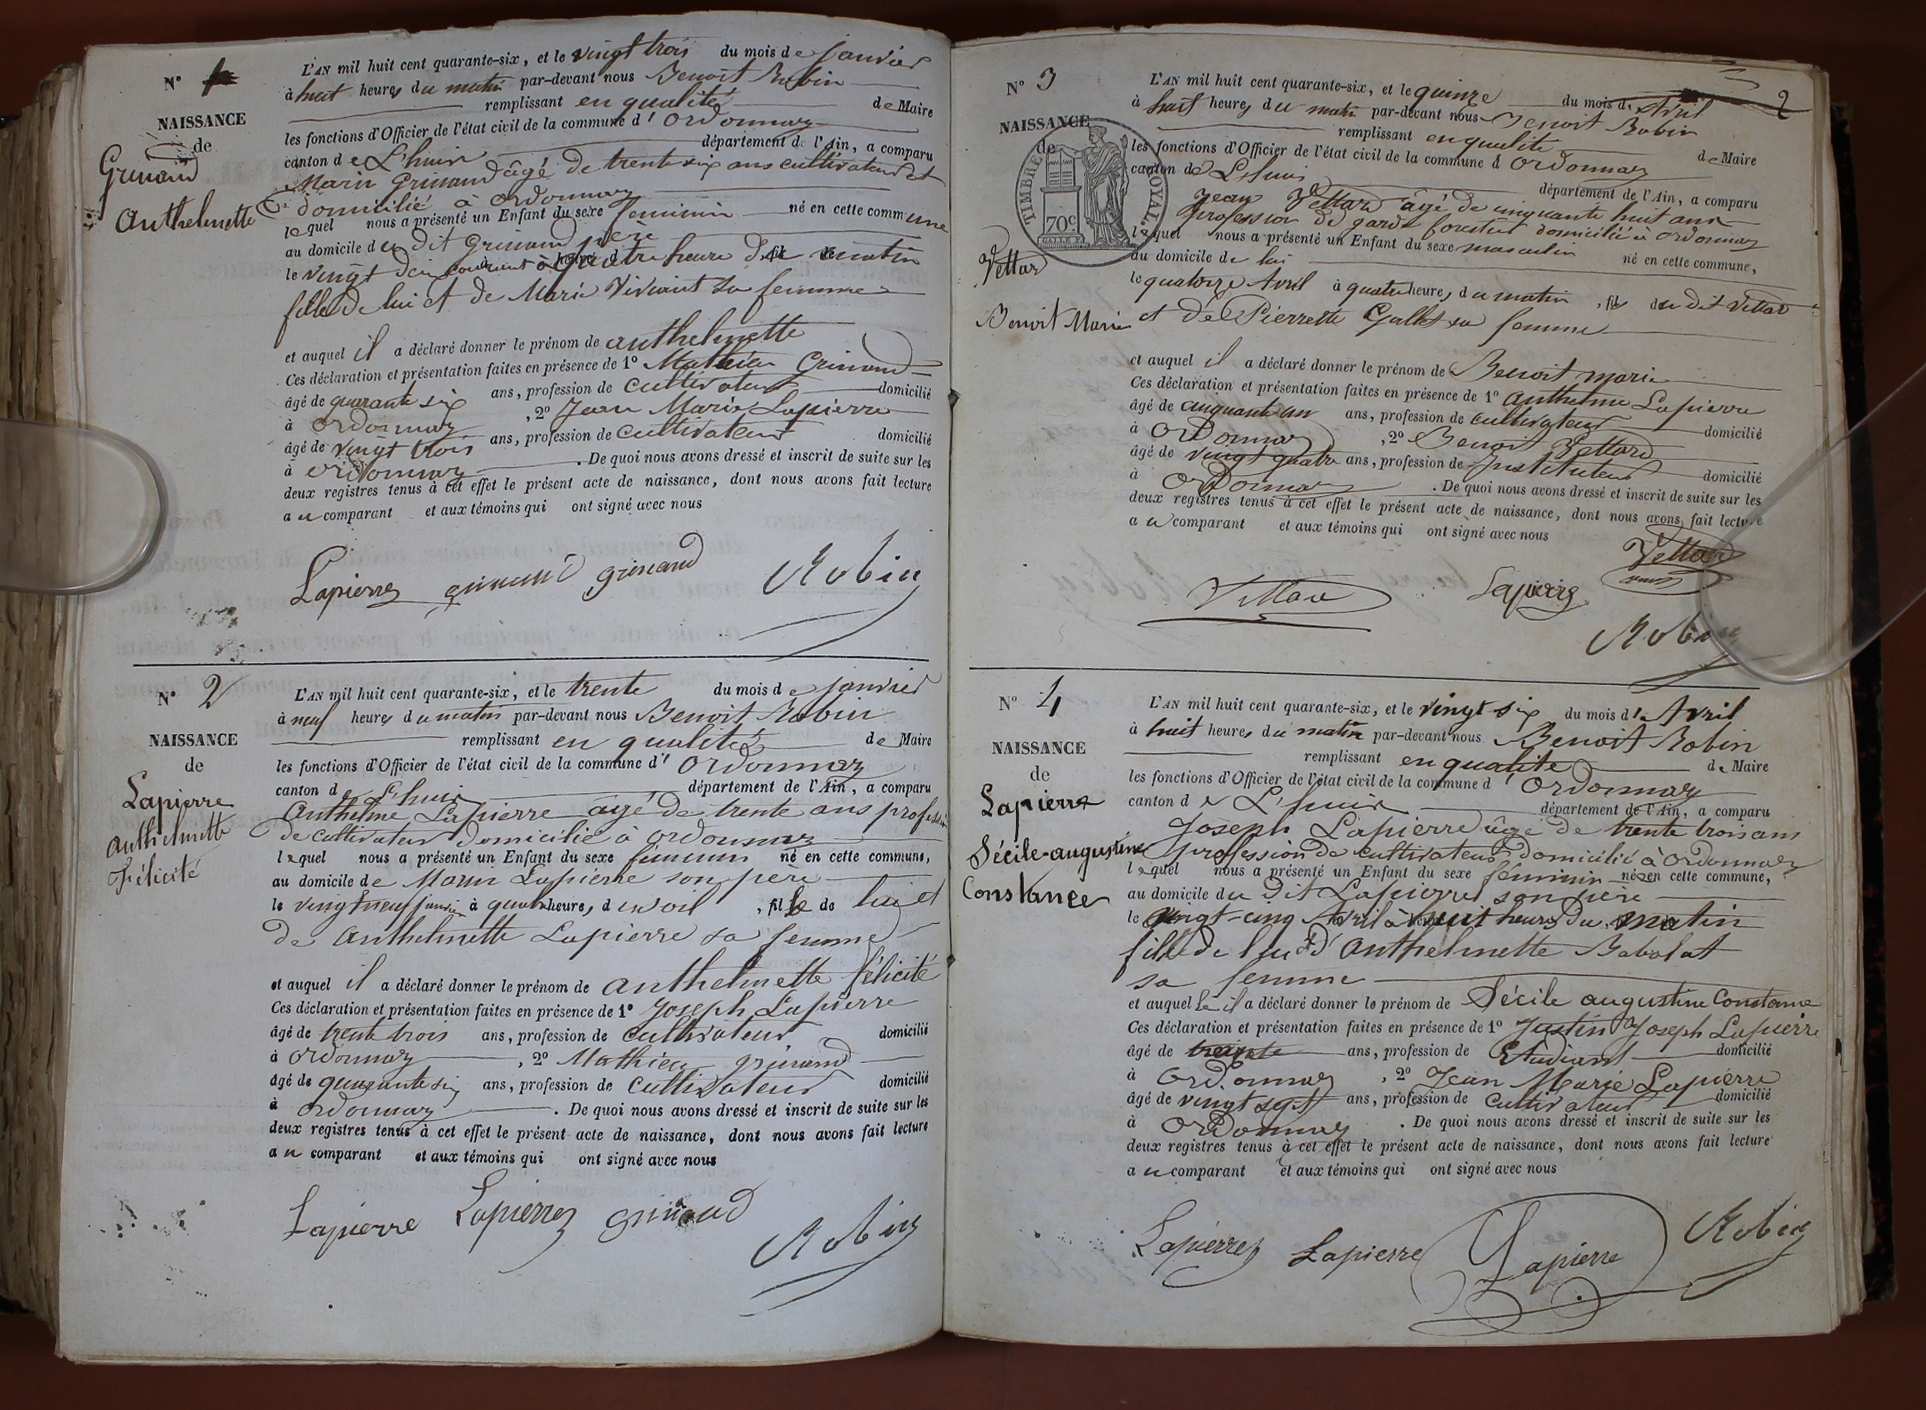 N° 1
NAISSANCE
de
Grinand
Anthelmette
L'AN mil huit cent quarante-six, et le vingt trois du mois de janvier
à huit heures du matin par-devant nous Benoit Robin
remplissant en qualité de Maire
les fonctions d'Officier de l'état civil de la commune d' Ordonnaz
canton de L'huis département de l'Ain, a comparu
Marin Grinand âgé de trente six ans cultivateur et
domicilié à Ordonnaz
lequel nous a présenté un Enfant du sexe feminin né en cette commune
au domicile du dit Grinand père
le vingt deux courant à quatre heure du matin
fille de lui et de Marie Viviant sa femme
et auquel il a déclaré donner le prénom de anthelmette
Ces déclaration et présentation faites en présence de 1° Mathieu Grinand
âgé de quarante six ans, profession de cultivateur domicilié
à Ordonnaz , 2° Jean Marie Lapierre
âgé de vingt trois ans, profession de cultivateur domicilié
à Ordonnaz . De quoi nous avons dressé et inscrit de suite sur les
deux registres tenus à cet effet le présent acte de naissance, dont nous avons fait lecture
au comparant et aux témoins qui ont signé avec nous
Lapierre grinand grinand Robin
N° 2
NAISSANCE
de
Lapierre
Anthelmette
Félicité
L'AN mil huit cent quarante-six, et le trente du mois de janvier
à neuf heures du matin par-devant nous Benoit Robin
remplissant en qualité de Maire
les fonctions d'Officier de l'état civil de la commune d' Ordonnaz
canton de L'huis département de l'Ain, a comparu
Anthelme Lapierre âgé de trente ans profession
de cultivateur domicilié à Ordonnaz
lequel nous a présenté un Enfant du sexe féminin né en cette commune,
au domicile de Marin Lapierre son père
le vingt neuf janvier à quatre heures du soir , fille de lui et
de Anthelmette Lapierre sa femme
et auquel il a déclaré donner le prénom de anthelmette félicité
Ces déclaration et présentation faites en présence de 1° Joseph Lapierre
âgé de trente trois ans, profession de cultivateur domicilié
à Ordonnaz , 2° Mathieu grinand
âgé de quarante six ans, profession de cultivateur domicilié
à Ordonnaz . De quoi nous avons dressé et inscrit de suite sur les
deux registres tenus à cet effet le présent acte de naissance, dont nous avons fait lecture
au comparant et aux témoins qui ont signé avec nous
Lapierre Lapierre grinand Robin
2
N° 3
NAISSANCE
de
TIMBRE ROYAL
70c
Vettard
Benoit Marie
L'AN mil huit cent quarante-six, et le quinze du mois d' Avril
à huit heures du matin par-devant nous Benoit Robin
remplissant en qualité de Maire
les fonctions d'Officier de l'état civil de la commune d Ordonnaz
canton de L'huis département de l'Ain, a comparu
Jean Vettard âgé de cinquante huit ans
profession de garde forestier domicilié à Ordonnaz
lequel nous a présenté un Enfant du sexe masculin né en cette commune,
au domicile de lui
le quatorze Avril à quatre heures du matin , fils du dit Vettard
et de Pierrette Gallet sa femme
et auquel il a déclaré donner le prénom de Benoit marie
Ces déclaration et présentation faites en présence de 1° Anthelme Lapierre
âgé de cinquante un ans, profession de cultivateur domicilié
à Ordonnaz , 2° Benoit Vettard
âgé de vingt quatre ans, profession de Instituteur domicilié
à Ordonnaz . De quoi nous avons dressé et inscrit de suite sur les
deux registres tenus à cet effet le présent acte de naissance, dont nous avons fait lecture
au comparant et aux témoins qui ont signé avec nous
Vettard
Vettard Lapierre
Robin
N° 4
NAISSANCE
de
Lapierre
Sécile-augustine
Constance
L'AN mil huit cent quarante-six, et le vingt six du mois d' Avril
à huit heures du matin par-devant nous Benoit Robin
remplissant en qualité de Maire
les fonctions d'Officier de l'état civil de la commune d Ordonnaz
canton de L'huis département de l'Ain, a comparu
Joseph Lapierre âgé de trente trois ans
profession de cultivateur domicilié à Ordonnaz
lequel nous a présenté un Enfant du sexe féminin né en cette commune,
au domicile du dit Lapierre son père
le vingt-cinq Avril à huit heures du matin
fille de lui et d'Anthelmette Babolat
sa femme
et auquel il a déclaré donner le prénom de Sécile augustine Constance
Ces déclaration et présentation faites en présence de 1° Justin Joseph Lapierre
âgé de trente ans, profession de Etudiant domicilié
à Ordonnaz , 2° Jean Marie Lapierre
âgé de vingt sept ans, profession de cultivateur domicilié
à Ordonnaz . De quoi nous avons dressé et inscrit de suite sur les
deux registres tenus à cet effet le présent acte de naissance, dont nous avons fait lecture
au comparant et aux témoins qui ont signé avec nous
Lapierre Lapierre Lapierre Robin